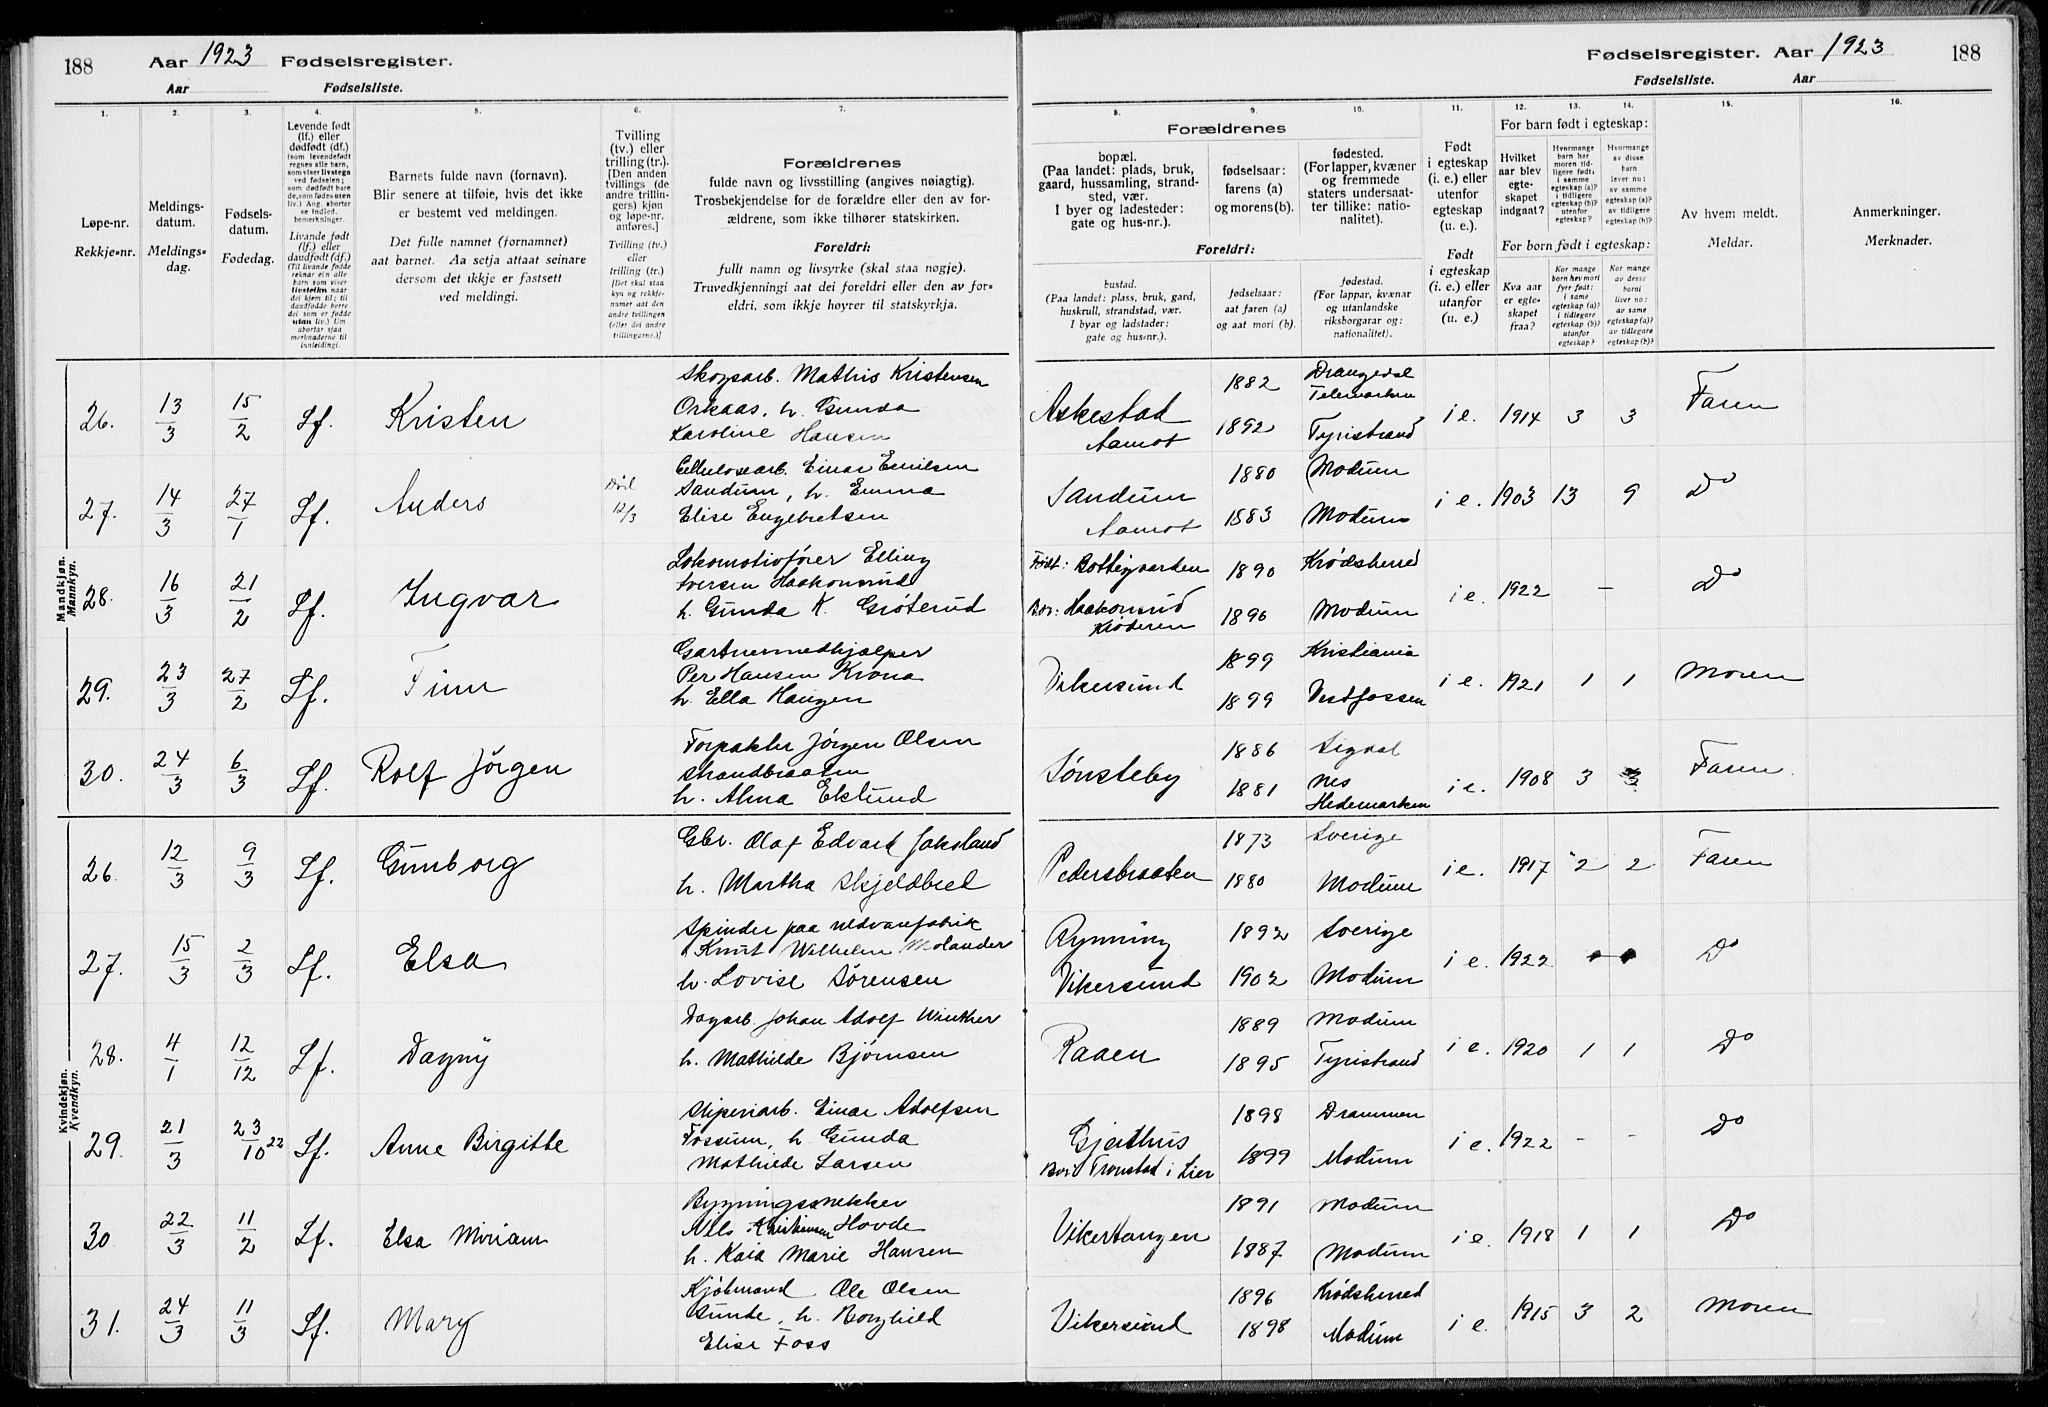 188 Aar 1923 Fødselsregister.
Aar Fødselsliste.
Fødselsregister. Aar 1923 188
Fødselsliste. Aar
1. 2. 3. 4. 5. 6. 7. 8. 9. 10. 11. 12. 13. 14. 15. 16.
Løpe-nr.
Rekkje-nr.
Meldings-
datum.
Meldings-
dag.
Fødsels-
datum.
Fødedag.
Levende født
(lf.) eller
dødfødt (df.)
Livande født
(lf.) eller
daudfødt (df.)
Barnets fulde navn (fornavn).
Blir senere at tilføie, hvis det ikke
er bestemt ved meldingen.
Det fulle namnet (fornamnet)
aat barnet. Aa setja attaat seinare
dersom det ikkje er fastsett
ved meldingi.
Tvilling
(tv.) eller
trilling (tr.).
[Den anden
tvillings (de
andre trillin-
gers) kjøn
og løpe-nr.
anføres.]
Tvilling (tv.)
eller
trilling (tr.)
Forældrenes
fulde navn og livsstilling (angives nøiagtig).
Trosbekjendelse for de forældre eller den av for-
ældrene, som ikke tilhører statskirken.
Foreldri:
fullt namn og livsyrke (skal staa nøgje).
Truvedkjenningi aat dei foreldri eller den av for-
eldri, som ikkje høyrer til statskyrkja.
Forældrenes
bopæl.
(Paa landet: plads, bruk,
gaard, hussamling, strand-
sted, vær.
I byer og ladesteder:
gate og hus-nr.).
fødselsaar:
farens (a)
og morens (b).
fødested.
(For lapper, kvæner
og fremmede
staters undersaat-
ter tillike: natio-
nalitet).
Foreldri:
bustad.
(Paa landet: plass, bruk, gard,
huskrull, strandstad, vær.
I byar og ladstader:
gate og hus-nr.).
fødselsaar:
aat faren (a)
og aat mori (b).
fødestad.
(For lappar, kvænar
og utanlandske
riksborgarar og:
nationalitet).
Født
i egteskap
(i. e.) eller
utenfor
egteskap
(u. e.).
Født
i egteskap
(i. e.) eller
utanfor
egteskap
(u. e.).
For barn født i egteskap:
Hvilket
aar blev
egte-
skapet
indgaat?
For born født i egteskap:
Kva aar
er egte-
skapet
fraa?
Av hvem meldt.
Meldar.
Anmerkninger.
Merknader.
Mandkjøn.
Mannkyn.
26. 13/3 15/2 Lf. Kristen
Skogsarb. Mathis Kristensen
Orkaas, h. Gunda
Karoline Hansen
Askestad
Aamot
1882 Drangedal Telemarken
1892 Tyristrand
i e. 1914 3 3 Faren
27. 14/3 27/1 Lf. Anders
12/3
Cellulosearb. Einar Emilsen
Sandum, h. Emma
Elise Engebretsen
Sandum
Aamot
1880 Modum
1883 Modum
i e. 1903 13 9 Do
28. 16/3 21/2 Lf. Ingvar
Lokomotivfører Elling
Iversen Haakonsrud
h. Gunda K. Grøterud
Født: Bottegaarden
Bor: Haakonsrud
Krøderen
1890 Krødsherred
1896 Modum
i e. 1922 - Do
29. 23/3 27/2 Lf. Finn
Gartnermedhjælper
Per Hansen Krona
h. Ella Haugen
Vikersund
1899 Kristiania
1899 Vestfossen
i e. 1921 1 1 Moren
30. 24/3 6/3 Lf. Rolf Jørgen
Forpakter Jørgen Olsen
Strandbraaten
h. Alma Eklund
Sønsteby
1886 Sigdal
1881 Nes
Hedemarken
i e. 1908 3 3 Faren.
Kvindekjøn.
Kvendkyn.
26. 12/3 9/3 Lf. Gunborg
Gbr. Olaf Edvard Jaksland
h. Martha Skjeldbred
Pedersbraaten
1873 Sverige
1880 Modum
i e. 1917 2 2 Faren
27. 15/3 2/3 Lf. Elsa
Spinder paa uldvarefabrik
Knut Wilhelm Molander
h. Lovise Sørensen
Rynning
Vikersund
1892 Sverige
1902 Modum
i e. 1922 - - Do
28. 4/1 12/12 Lf. Dagny
Dagarb. Johan Adolf Winther
h. Mathilde Bjørnsen
Raaen
1889 Modum
1895 Tyristrand
i e. 1920 1 1 Do
29. 21/3 23/10 22 Lf. Anne Birgitte
Sliperiarb. Einar Adolfsen
Fossum, h. Gunda
Mathilde Larsen
Gjeithus
Bor: Tronstad i Lier
1898 Drammen
1899 Modum
i e. 1922 - - Do
30 22/3 11/2 Lf. Elsa Miriam
Bygningssnekker
Nils Kristiansen Hovde
h. Kaia Marie Hansen
Vikertangen
1891 Modum
1887 Modum
i e. 1918 1 1 Do
31. 24/3 11/3 Lf. Mary
Kjøbmand Ole Olsen
Sunde, h. Borghild
Elise Foss
Vikersund
1896 Krødsherred
1898 Modum
i e. 1915 3 2 Moren